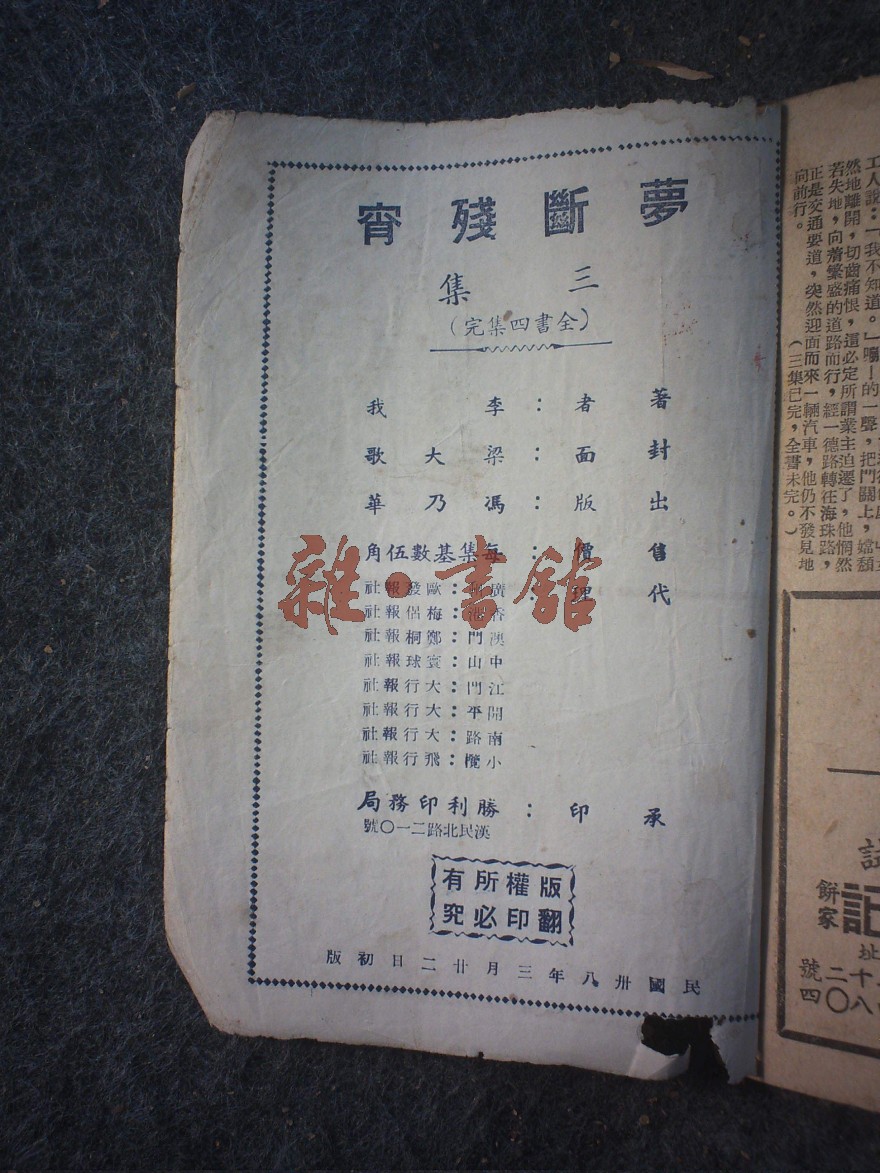 夢斷殘宵
三集
(全書四集完)
著者：李我
封面：梁大歌
出版：馮乃華
售價：每集基數伍角
代理：廣州：歐發報社
香港：梅侶報社
澳門：鄭桐報社
中山：寰球報社
江門：大行報社
開平：大行報社
南路：大行報社
小欖：飛行報社
承印：勝利印務局
漢民北路二一〇號
版權所有
翻印必究
民國卅八年三月廿二日初版
雜·書館
工人說：「我不知道。」嘭－的一聲，把門關上，
然地離開，切齒痛恨，這必定所謂業主迫遷了，他惘然
若失地，向着繁盛的道路而行，經一德路轉往海珠路，
正是交通要道，突然迎面而來一輛汽車，他仍不發見地
向前行。
（三集已完，全書未完。）
記
餅家
址
號二十
四〇八